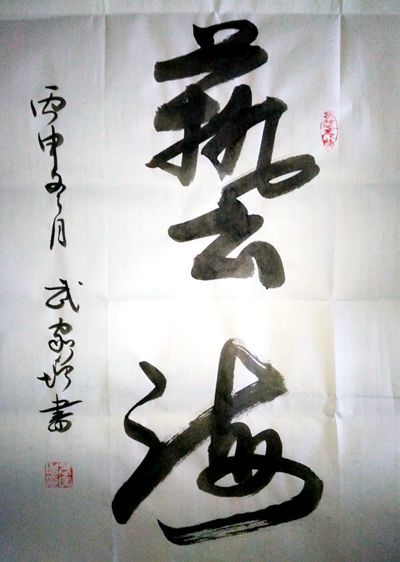 藝海
丙申年月 武家
書